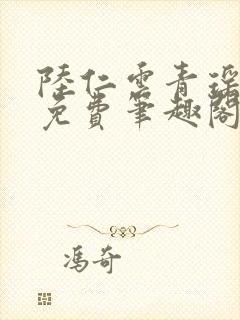 陸仁雲青瑶
免費筆趣閣
馮奇